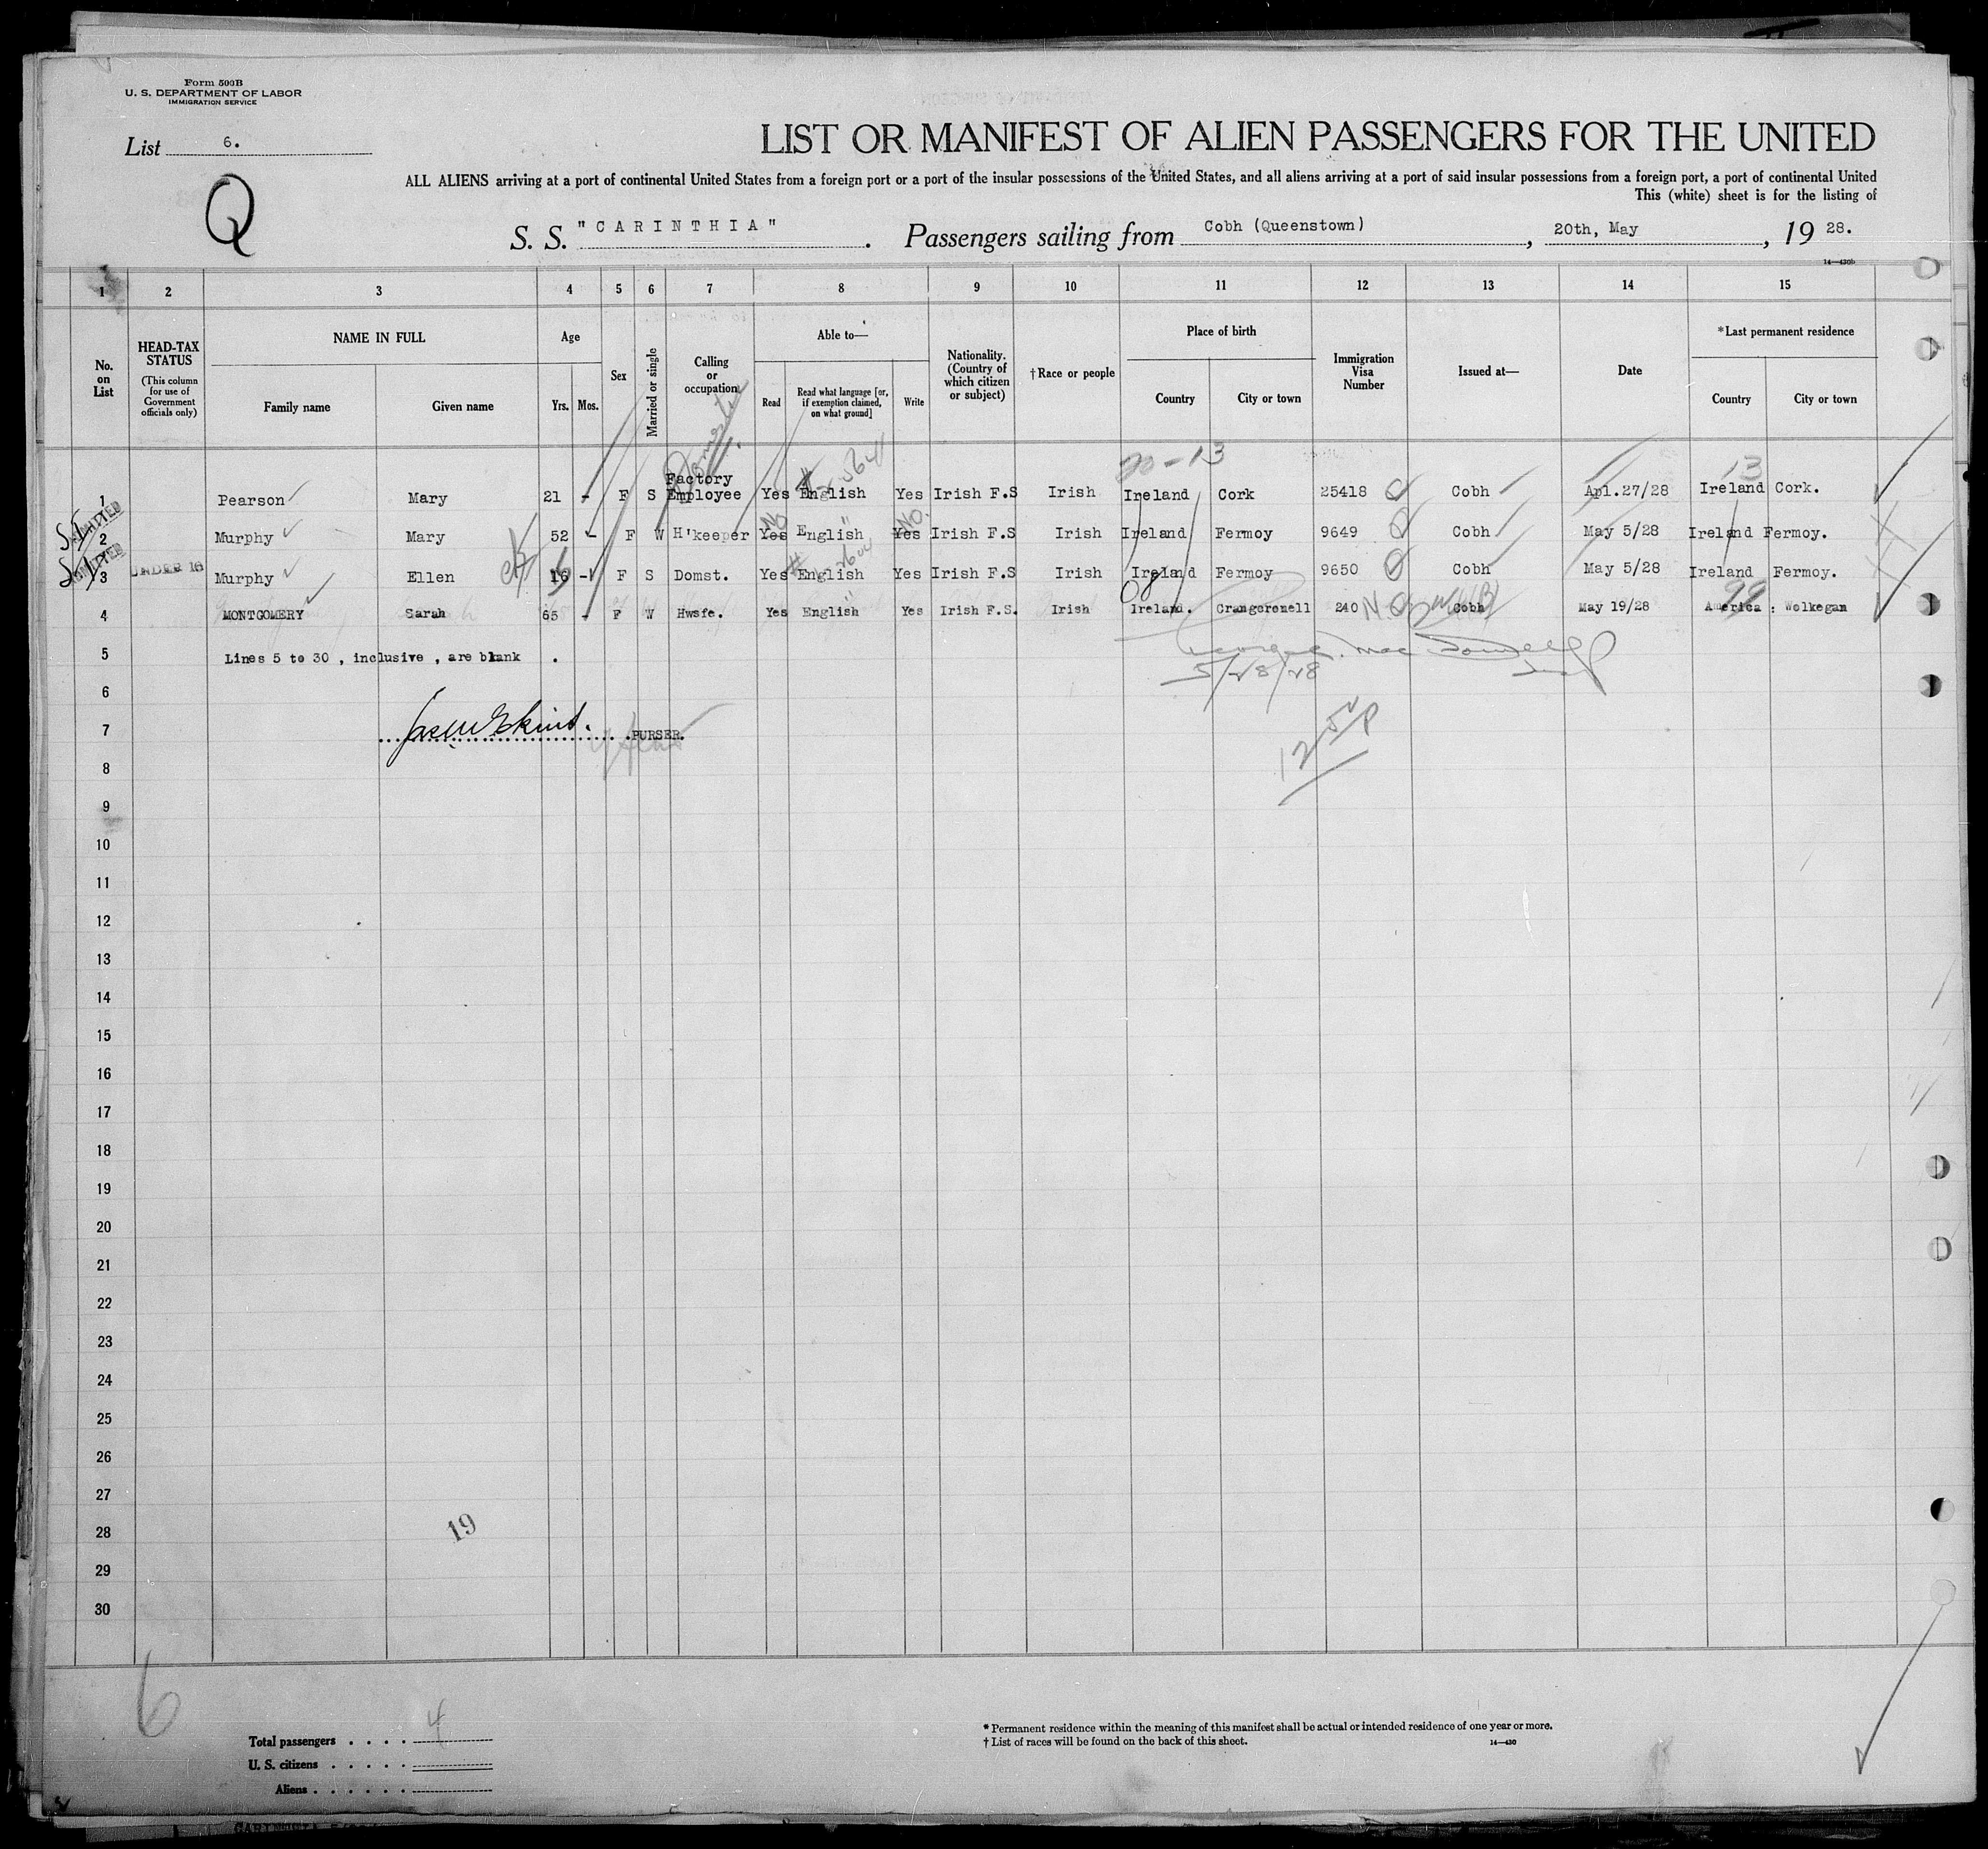 Form 500B
U. S. DEPARTMENT OF LABOR
IMMIGRATION SERVICE
List 6.
Q
LIST OR MANIFEST OF ALIEN PASSENGERS FOR THE UNITED
ALL ALIENS arriving at a port of continental United States from a foreign port or a port of the insular possessions of the United States, and all aliens arriving at a port of said insular possessions from a foreign port, a port of continental United
This (white) sheet is for the listing of
S. S. "CARINTHIA". Passengers sailing from Cobh (Queenstown), 20th, May, 19 28.
14—430b
1 2 3 4 5 6 7 8 9 10 11 12 13 14 15
No. on List
HEAD-TAX STATUS (This column for use of Government officials only)
NAME IN FULL
Family name
Given name
Age
Yrs.
Mos.
Sex
Married or single
Calling or occupation
Able to—
Read
Read what language [or, if exemption claimed, on what ground]
Write
Nationality. (Country of which citizen or subject)
†Race or people
Place of birth
Country
City or town
Immigration Visa Number
Issued at—
Date
*Last permanent residence
Country
City or town
Domestic
20-13
13
1 Pearson Mary 21 - F S Factory Employee Yes English Yes Irish F.S Irish Ireland Cork 25418 Cobh Apl.27/28 Ireland Cork.
S.I. ADMITTED
No No.
2 Murphy Mary 52 - F W H'keeper Yes English " Yes Irish F.S Irish Ireland Fermoy 9649 Cobh May 5/28 Ireland Fermoy.
S.I. ADMITTED
3 UNDER 16 Murphy Ellen 16 - F S Domst. Yes English Yes Irish F.S Irish Ireland Fermoy 9650 Cobh May 5/28 Ireland Fermoy.
08
99
4 MONTGOMERY Sarah 65 - F W Hwsfe. Yes English " Yes Irish F.S. Irish Ireland. Crangoronell 240 Cobh May 19/28 America : Wolkegan
5 Lines 5 to 30 , inclusive , are blank .
5/28/28
6
7 PURSER.
8
9
10
11
12
13
14
15
16
17
18
19
20
21
22
23
24
25
26
27
28 19
29
30
6
Total passengers . . . . 4
U. S. citizens . . . . .
Aliens . . . . . .
* Permanent residence within the meaning of this manifest shall be actual or intended residence of one year or more.
† List of races will be found on the back of this sheet.
14—430